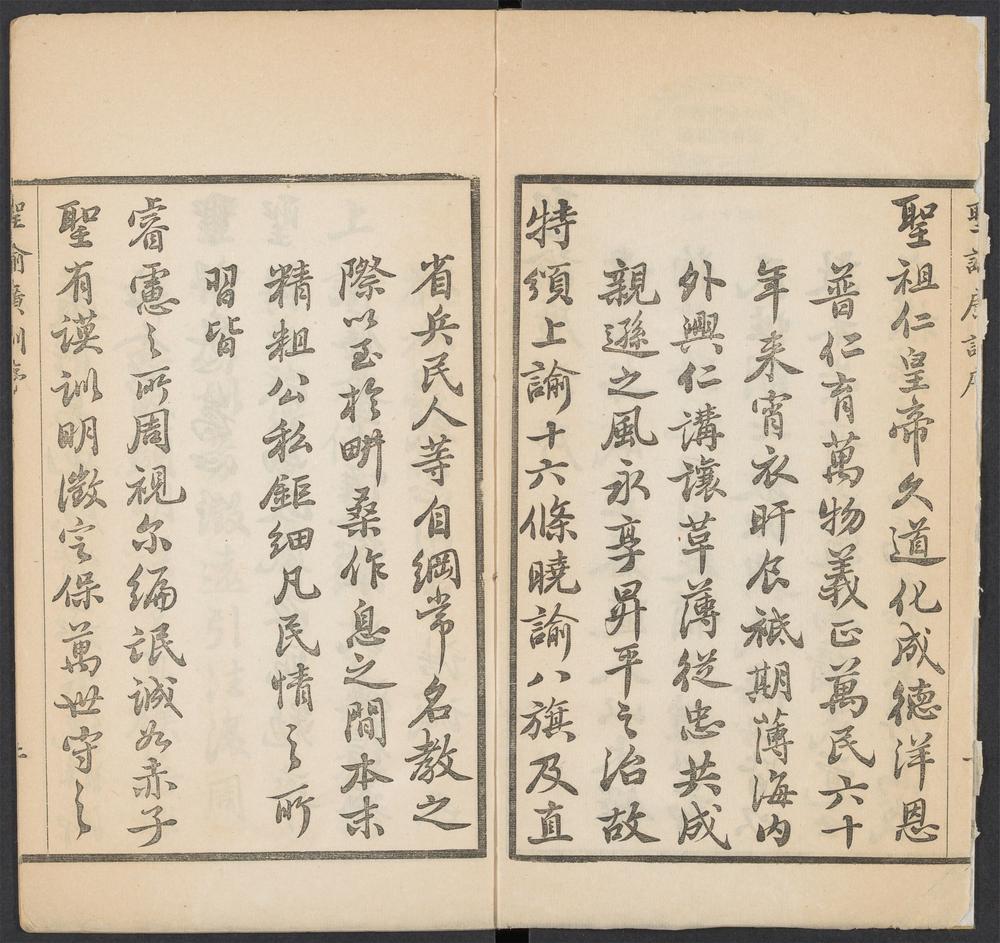 聖諭廣訓序
聖祖仁皇帝久道化成德洋恩
普仁育萬物義正萬民六十
年来宵衣旰食祗期薄海内
外興仁講讓革薄從忠共成
親遜之風永享昇平之治故
特頒上諭十六條曉諭八旗及直
省兵民人等自綱常名教之
際以至於畊桑作息之間本末
精粗公私鉅細凡民情之所
習皆
睿慮之所周視尔編氓誠如赤子
聖有謨訓明徵定保萬世守之
聖諭廣訓序